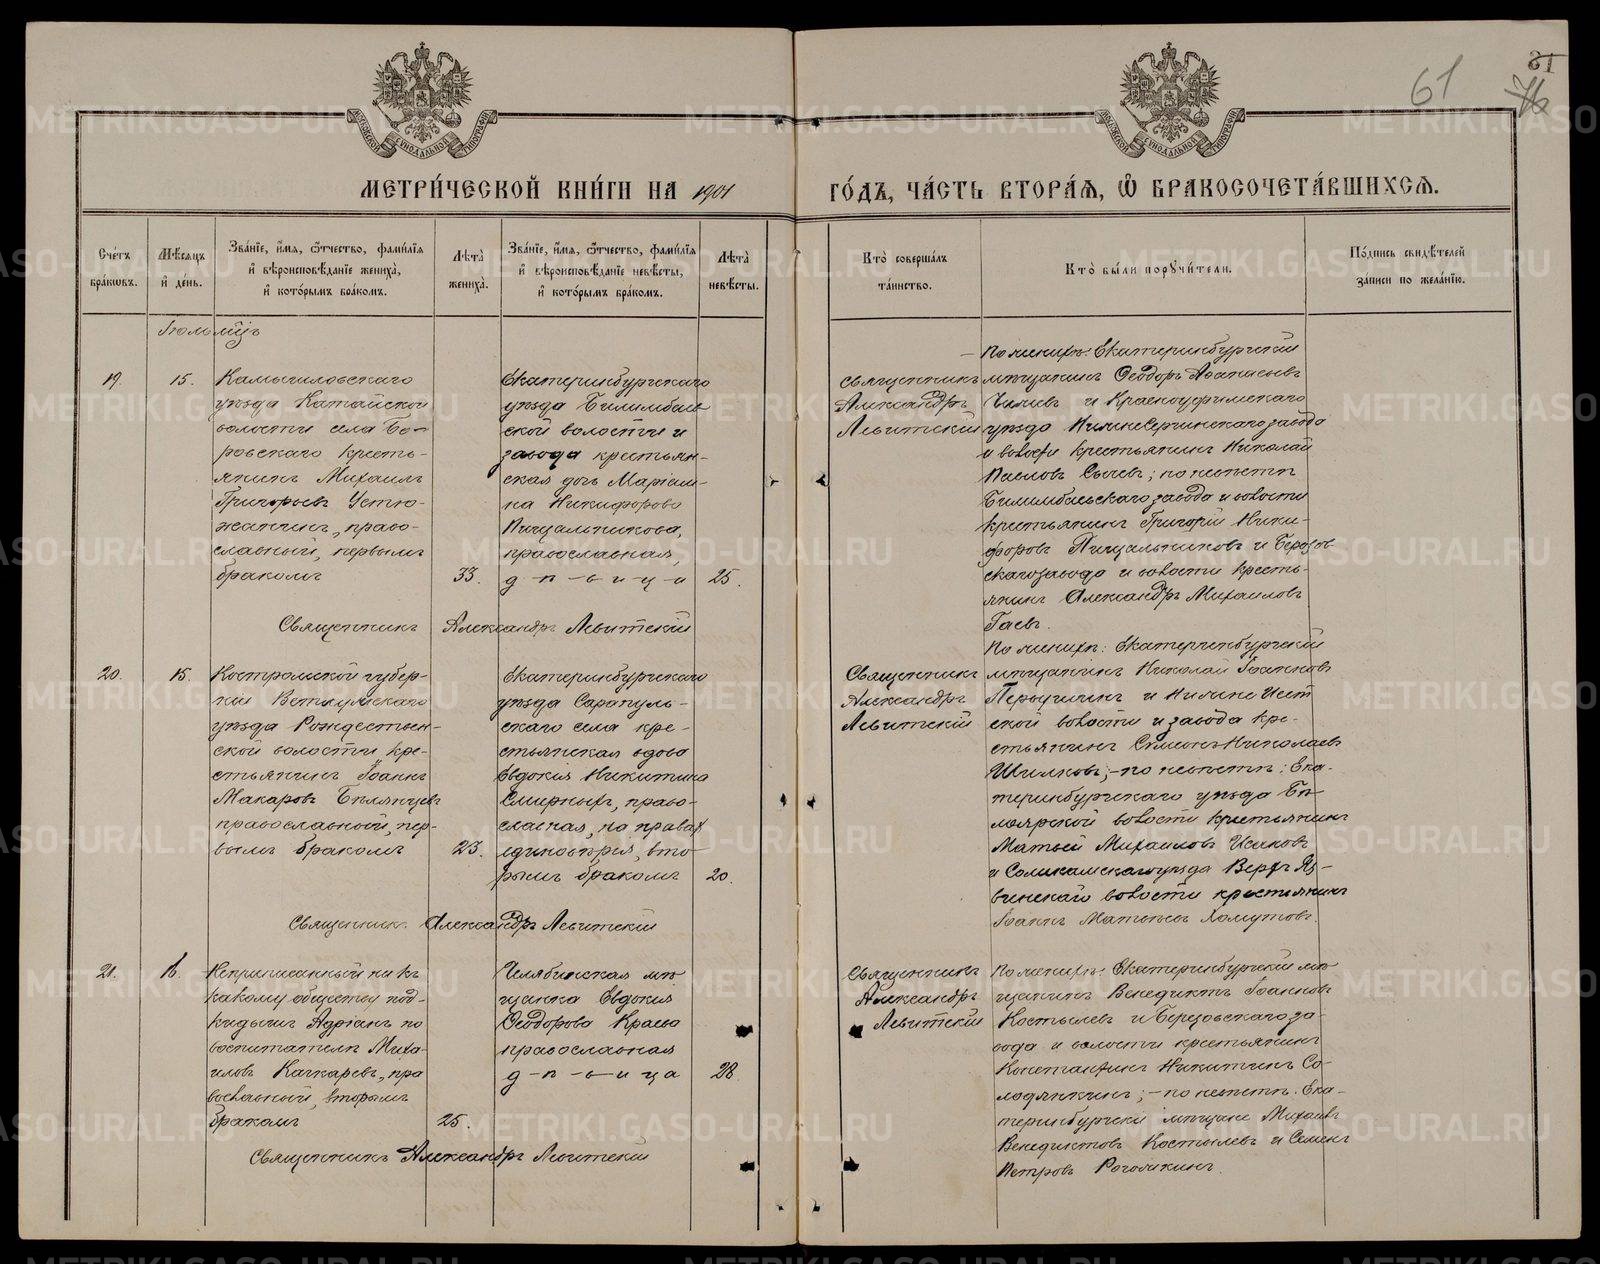 61
МЕТРИ́ЧЕСКОЙ КНИ́ГИ НА 1901
ГО́ДЪ, ЧА́СТЬ ВТОРА́Я, Ѡ БРАКОСОЧЕТА́ВШИХСЯ.
МОСКОВСКОЙ СѴНОДАЛЬНОЙ ТИПОГРАФІИ
МОСКОВСКОЙ СѴНОДАЛЬНОЙ ТИПОГРАФІИ
Сче́тъ
бра́ковъ.
Мѣсяцъ
и де́нь.
Зва́нїе, и́мя, ѻ́тчество, фами́лїя
и вѣроисповѣ́данїе жениха̀,
и кото́рымъ бра́комъ.
Лѣта̀
жениха̀.
Зва́нїе, и́мя, ѻ́тчество, фами́лїя
и вѣроисповѣ́данїе невѣ́сты,
и кото́рымъ бра́комъ.
Лѣта̀
невѣ́сты.
Кто̀ соверша́лъ
та́инство.
Кто̀ бы́ли порꙋчи́тели.
По́дпись свидѣ́телей
за́писи по жела́нїю.
19.
15.
Камышловскаго
уѣзда Катайской
волости села Бо-
ровскаго кресть-
янинъ Михаилъ
Григорьевъ Устю-
жанинъ, право-
славный, первымъ
бракомъ
33.
Екатеринбургскаго
уѣзда Билимбаев
ской волости и
завода крестьян-
ская дочь Маріам-
на Никифорова
Пищальникова,
православная,
д-ѣ-в-и-ц-а
25.
Священникъ Александръ Левитскій
Священникъ
Александръ
Левитскій
По женихѣ: Екатеринбургскій
мѣщанинъ Ѳеодоръ Аѳанасьевъ
и Красноуфимскаго
уѣзда Нижнесергинскаго завода
и волости крестьянинъ Николай
Павловъ Сычевъ; по невѣстѣ
Билимбаевскаго завода и волости
крестьянинъ Григорій Ники-
форовъ Пищальниковъ и Березов
скаго завода и волости кресть-
янинъ Александръ Михаиловъ
Гаевъ.
20.
15.
Костромской губер-
ніи Ветлужскаго
уѣзда Рождествен-
ской волости, кре-
стьянинъ Іоаннъ
Макаровъ Бѣлянцевъ
православный, пер-
вымъ бракомъ
23.
Екатеринбургскаго
уѣзда Сарапуль-
скаго села кре-
стьянская вдова
Евдокія Никитина
Смирныхъ, право-
славная, на правах
единовѣрія, вто-
рымъ бракомъ
20.
Священникъ Александръ Левитскій
Священникъ
Александръ
Левитскій
По женихѣ: Екатеринбургскій
мѣщанинъ Николай Іоанновъ
Первушинъ и Нижне Исет
ской волости и завода кре-
стьянинъ Симеонъ Николаевъ
Шилковъ; - по невѣстѣ: Ека-
теринбургскаго уѣзда Бѣ-
лоярской волости крестьянинъ
Матѳей Михаиловъ Исаковъ
и Соликамскаго уѣзда Верхъ Яз-
винскаго волости крестьянинъ
Іоаннъ Матѳеевъ Хомутовъ.
21.
16.
Неприписанный ни къ
какому обществу под-
кидышъ Адріанъ по
воспитателю Миха-
иловъ Качкаревъ, пра
вославный, вторымъ
бракомъ
25.
Челябинская мѣ-
щанка Евдокія
Ѳеодорова Краева
православная
д-ѣ-в-и ца
28
Священникъ Александръ Левитскій
Священникъ
Александръ
Левитскій
По женихѣ: Екатеринбургскій мѣ
щанинъ Венедиктъ Іоанновъ
Костылевъ и Березовскаго за-
вода и волости крестьянинъ
Константинъ Никитинъ Со-
лодянкинъ; - по невѣстѣ: Ека-
теринбургскіе мѣщане Михаилъ
Венедиктовъ Костылевъ и Семенъ
Петровъ Рогожкинъ.
METRIKI.GASO-URAL.RU